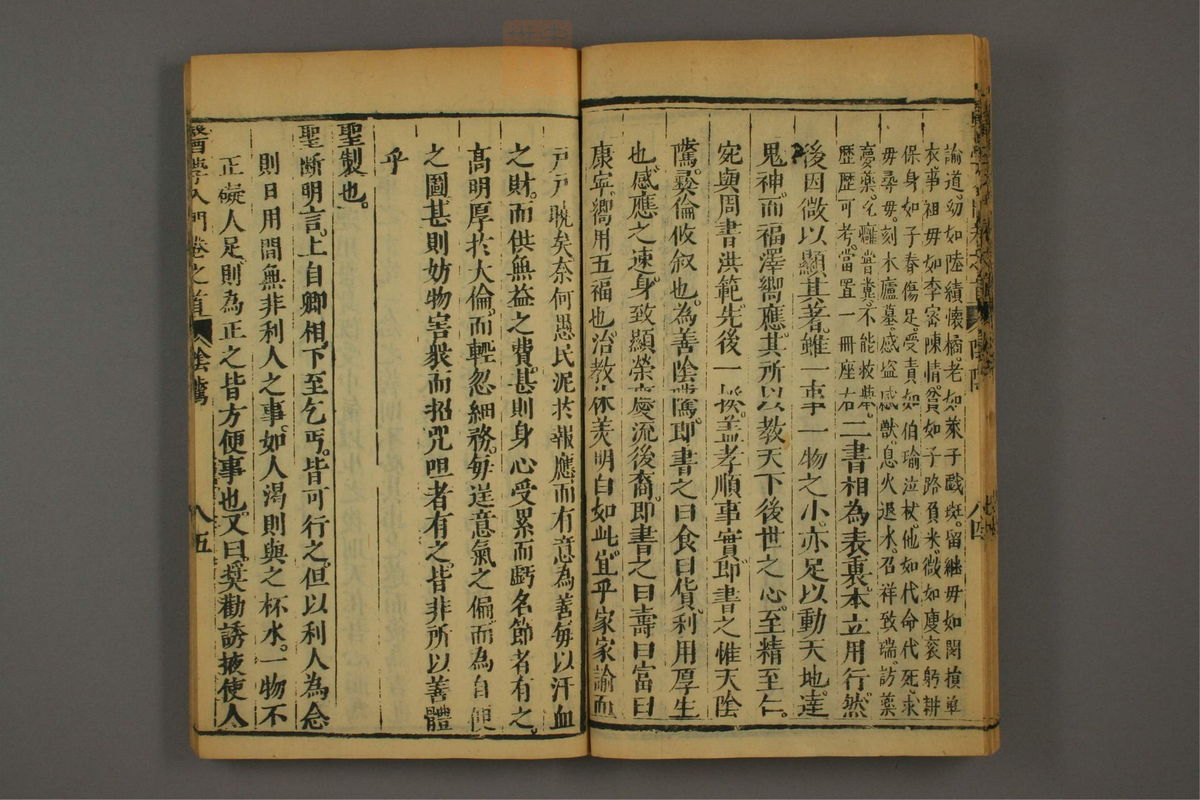 諭道幼如陸績懷橘老如萊子戲斑留繼母如閔損單
衣事祖母如李密陳情貧如子路負米微如庾袞躬耕
保身如子春傷足受責如伯瑜泣杖他如代命代死求
母尋母刻木廬墓感盜感獸息火退水召祥致瑞訪藥
夢藥乞癰嘗糞不能枚舉
歷歷可考當置一冊座右二書相為表裏本立用行然
後因微以顯其著雖一事一物之小亦足以動天地達
鬼神而福澤嚮應其所以教天下後世之心至精至仁
宛與周書洪範先後一揆蓋孝順事實即書之惟天陰
騭彝倫攸敘也為善陰騭即書之曰食曰貨利用厚生
也感應之速身致顯榮慶流後裔即書之曰壽曰富曰
康寧嚮用五福也治教休美明白如此宜乎家家諭而
戶戶曉矣奈何愚民泥於報應而有意為善每以汗血
之財而供無益之費甚則身心受累而虧名節者有之
高明厚於大倫而輕忽細務每逞意氣之偏而為自便
之圖甚則妨物害眾而招咒咀者有之皆非所以善體
乎
聖製也
聖斷明言上自卿相下至乞丐皆可行之但以利人為念
則日用間無非利人之事如人渴則與之杯水一物不
正礙人足則為正之皆方便事也又曰獎勸誘掖使人
醫學入門 卷之首 陰騭 八五